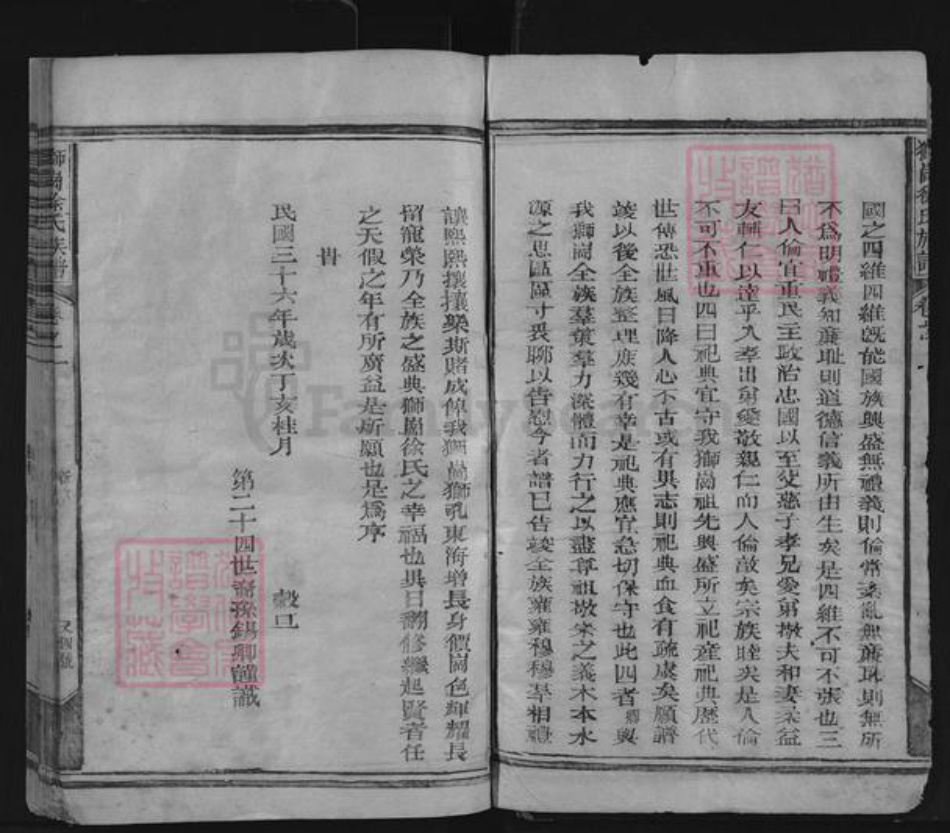 國之四維四維既能國族興盛無禮義則倫常紊亂無廉恥則無所
不為明禮義知廉恥則道德信義所由生矣是四維不可不張也三
曰人倫宜重民主政治忠國以至父慈子孝兄愛弟敬夫和妻柔益
友輔仁以達乎入孝出弟愛敬親仁而人倫敦矣宗族睦矣是人倫
不可不重也四曰祀典宜守我獅崗祖先興盛所立祀產祀典歷代
世傳恐世風日降人心不古或有異志則祀典血食有疏虞矣願譜
竣以後全族整理庶幾有幸是祀典應宜急切保守也此四者卿與
我獅崗全族羣策羣力深體而力行之以盡尊祖敬宗之義木本水
源之思區區寸衷聊以告慰今者譜已告竣全族雍雍穆穆恭相禮
讓熙熙攘攘樂斯睹成俾我獅崗獅吼東海增長身價崗色輝耀長
留寵榮乃全族之盛典獅崗徐氏之幸福也異日翻修繼起賢者任
之天假之年有所廣益是所願也是為序
旹
民國三十六年歲次丁亥桂月 穀旦
第二十四世裔孫錫卿謹識
獅崗徐氏族譜
獅崗徐氏族譜
譜學會
收藏